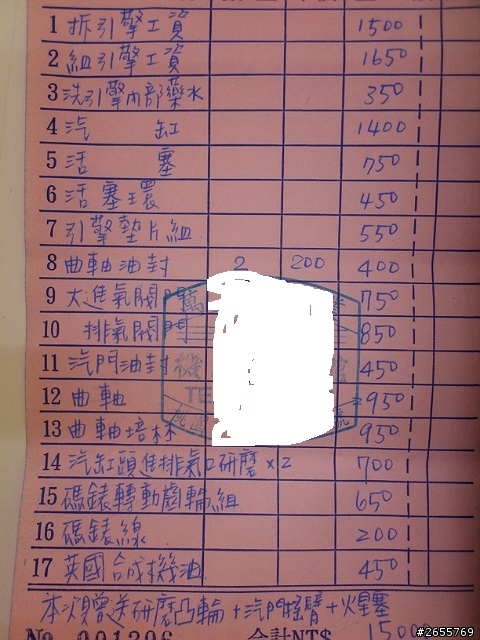 1 拆引擎工資 1500
2 組引擎工資 1650
3 洗引擎內部藥水 350
4 汽 缸 1400
5 活 塞 750
6 活塞環 450
7 引擎墊片組 550
8 曲軸油封 2 200 400
9 大進氣閥門 750
10 排氣閥門 850
11 汽門油封 450
12 曲軸 950
13 曲軸培林 950
14 汽缸頭進排氣口研磨×2 700
15 碼錶轉動齒輪組 650
16 碼錶線 200
17 英國合成機油 450
本次贈送研磨凸輪+汽門搖臂+火星塞
No 001396 合計NT$ 15000
#2655769